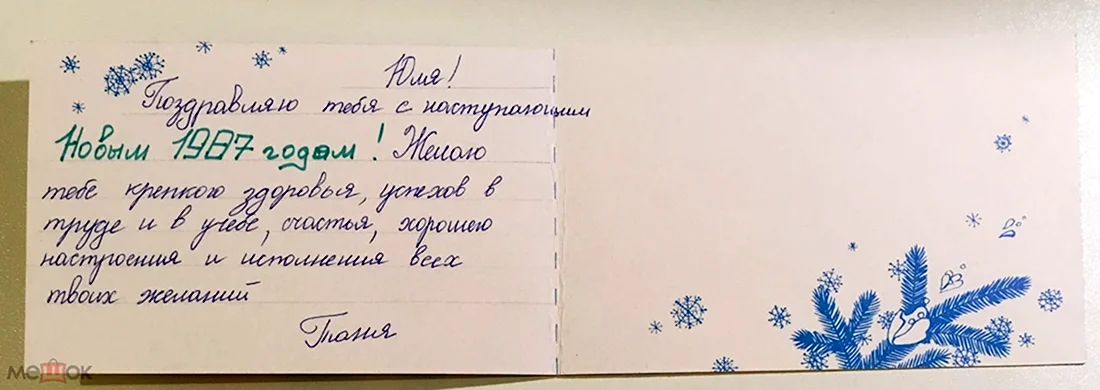 Юля!
Поздравляю тебя с наступающим
Новым 1987 годом! Желаю
тебе крепкого здоровья, успехов в
труде и в учебе, счастья, хорошего
настроения и исполнения всех
твоих желаний
Таня
мешок